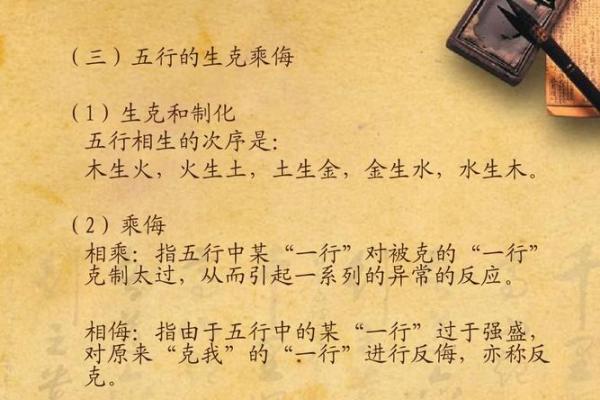 （三）五行的生克乘侮
（1）生克和制化
五行相生的次序是：
木生火，火生土，土生金，金生水，水生木。
（2）乘侮
相乘：指五行中某“一行”对被克的“一行”
克制太过，从而引起一系列的异常的反应。
相侮：指由于五行中的某“一行”过于强盛，
对原来“克我”的“一行”进行反侮，亦称反
克。